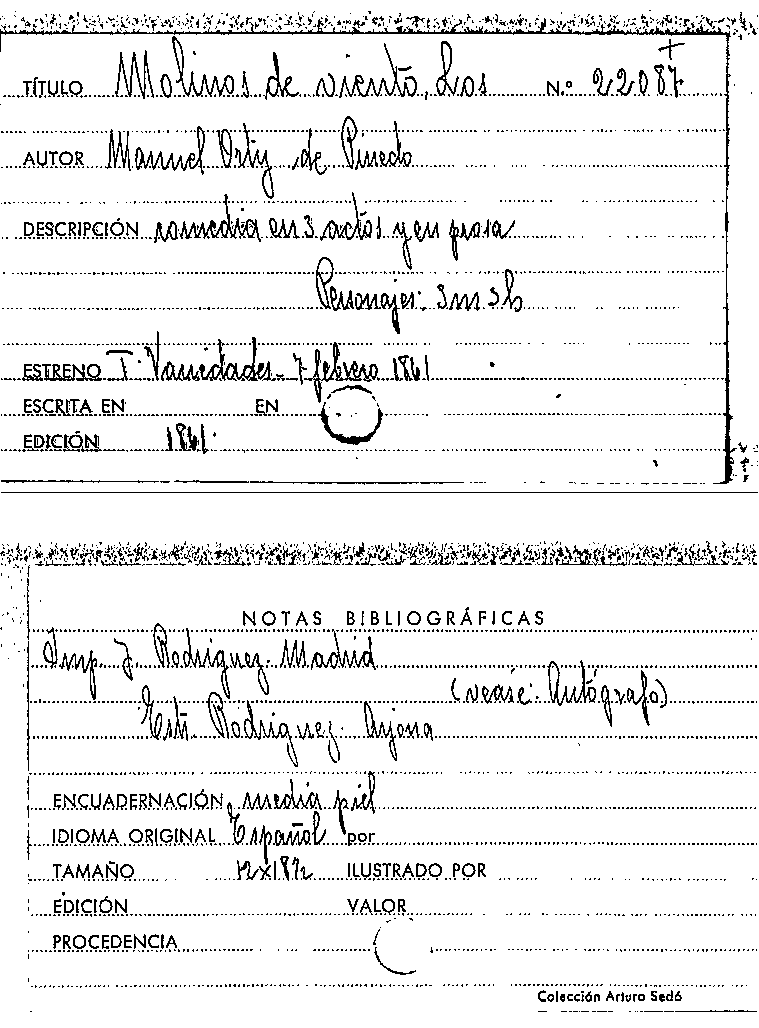 TÍTULO Molinos de viento, Los N.º 22087
AUTOR Manuel Ortiz de Pinedo
DESCRIPCIÓN comedia en 3 actos y en prosa
Personajes: 3m 3h
ESTRENO T. Variedades - 7 febrero 1861
ESCRITA EN EN
EDICIÓN 1861.
NOTAS BIBLIOGRÁFICAS
Imp. J. Rodriguez. Madrid
(vease: Autógrafo)
Estr. Rodriguez. Arjona
ENCUADERNACIÓN media piel
IDIOMA ORIGINAL Español por
TAMAÑO ILUSTRADO POR
EDICIÓN VALOR
PROCEDENCIA
Colección Arturo Sedó